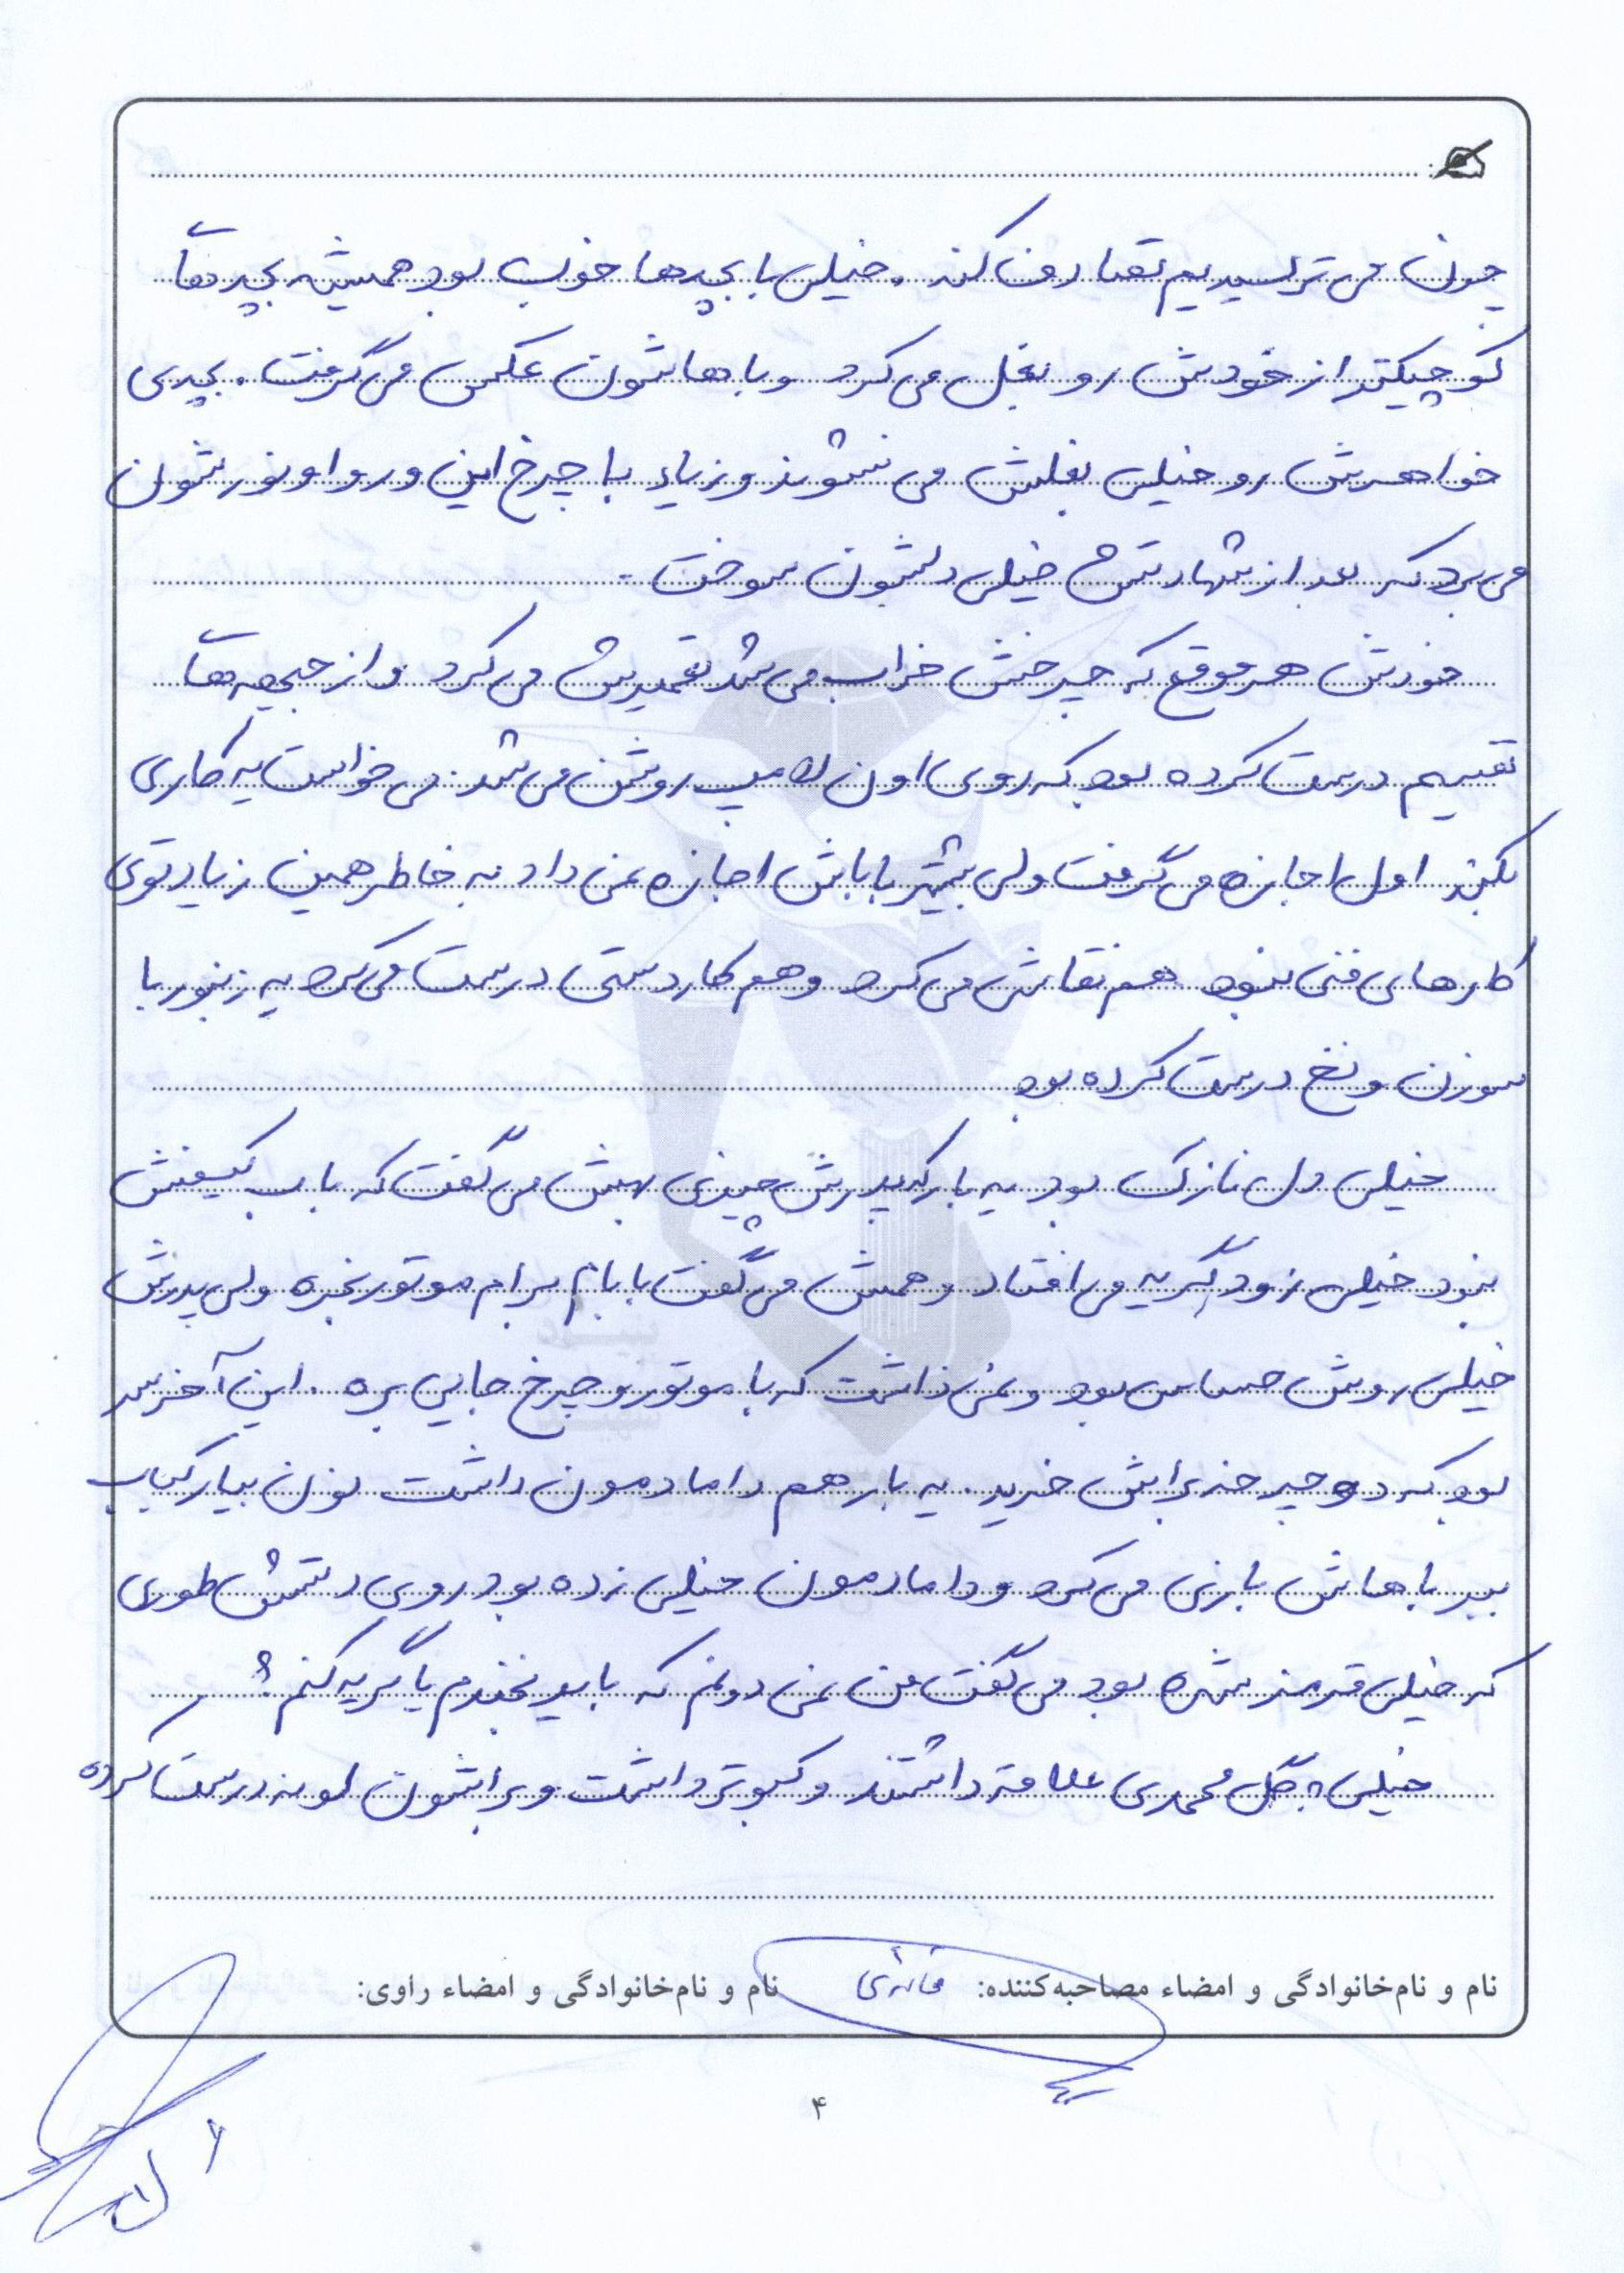 چون می ترسیدیم تصادف کند. خیلی با بچه ها خوب بود همیشه بچه های
کوچیکتر از خودش رو بغل می کرد و باهاشون عکس می گرفت. بچه ی
خواهرش رو خیلی بغلش می نشوند و زیاد با چرخ این ور و اونورشون
می برد که بعد از شهادتش خیلی دلشون سوخت.
خودش هر موقع که چرخش خراب می شد تعمیرش می کرد و از جبهه های
تقسیم درست کرده بود که روی اون لامپ روشن می شد. می خواست یه کاری
بکند اول اجازه می گرفت ولی بیشتر باباش اجازه نمی داد به خاطر همین زیاد توی
کارهای فنی نبود هم نقاشی می کرد و هم کاردستی درست می کرد یه زنبور با
سوزن و نخ درست کرده بود
خیلی دل نازک بود یه بار که پدرش چیزی بهش می گفت که باب
نبود خیلی زود گریه می افتاد و همش می گفت بابام برام موتور نخره ولی پدرش
خیلی روش حساس بود و نمی ذاشت که با موتور و چرخ جایی بره. این آخر سر
بود که دوچرخه برایش خرید. یه بار هم دامادمون داشت نون بیار کباب
ببر باهاش بازی می کرد و دامادمون خیلی زده بود روی دستش طوری
که خیلی قرمز شده بود می گفت من نمی دونم که باید بخندم یا گریه کنم؟
خیلی به گل محمدی علاقه داشتند و کبوتر داشت و براشون لونه درست کرده
نام و نام‌خانوادگی و امضاء مصاحبه‌کننده: نام و نام‌خانوادگی و امضاء راوی:
۴